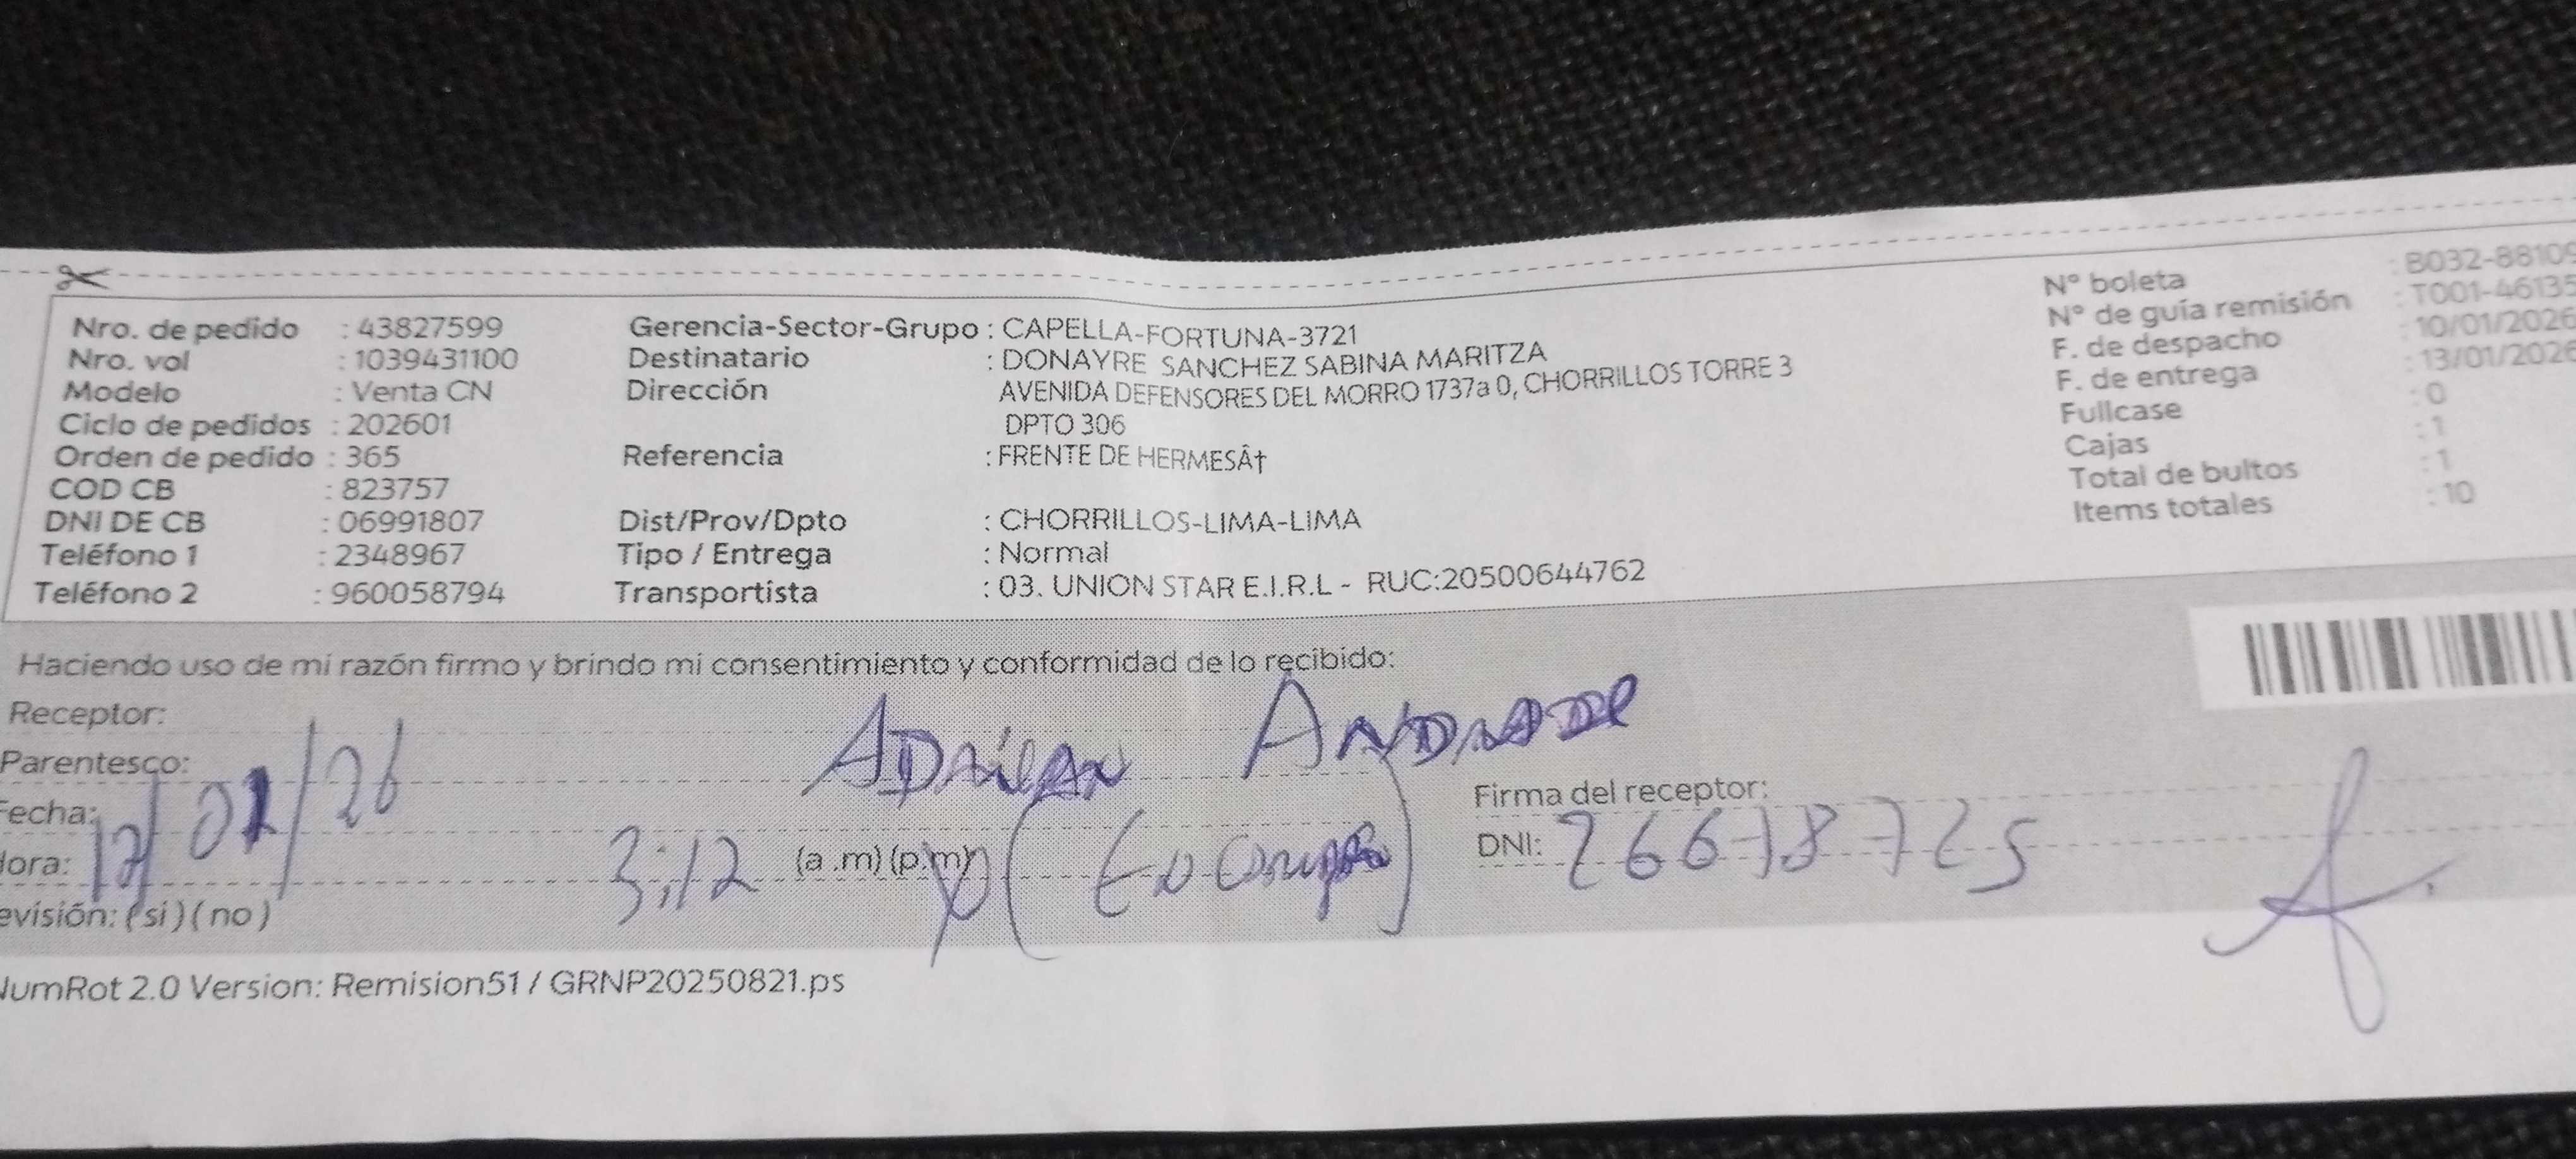 Nro. de pedido : 43827599
Nro. vol : 1039431100
Modelo : Venta CN
Ciclo de pedidos : 202601
Orden de pedido : 365
COD CB : 823757
DNI DE CB : 06991807
Teléfono 1 : 2348967
Teléfono 2 : 960058794
Gerencia-Sector-Grupo : CAPELLA-FORTUNA-3721
Destinatario : DONAYRE SANCHEZ SABINA MARITZA
Dirección AVENIDA DEFENSORES DEL MORRO 1737a 0, CHORRILLOS TORRE 3
DPTO 306
Referencia : FRENTE DE HERMESÂ†
Dist/Prov/Dpto : CHORRILLOS-LIMA-LIMA
Tipo / Entrega : Normal
Transportista : 03. UNION STAR E.I.R.L - RUC:20500644762
N° boleta : B032-88109
N° de guía remisión : T001-46135
F. de despacho : 10/01/2026
F. de entrega : 13/01/2026
Fullcase : 0
Cajas : 1
Total de bultos : 1
Items totales : 10
Haciendo uso de mi razón firmo y brindo mi consentimiento y conformidad de lo recibido:
Receptor: Adrian Andrade
Parentesco:
Fecha: /01/26
ora: 3:12 (a .m) (p.m)
Firma del receptor:
DNI:
evisión: ( si ) ( no )
NumRot 2.0 Version: Remision51 / GRNP20250821.ps